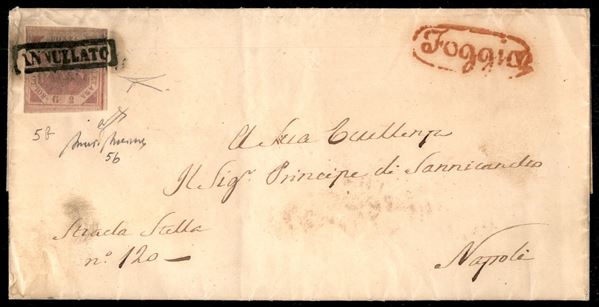 ANNULLATO
G 2
Foggia
58
56
A Sua Eccellenza
Il Sigr. Principe di Sannicandro
Strada Stella
no. 120 —
Napoli